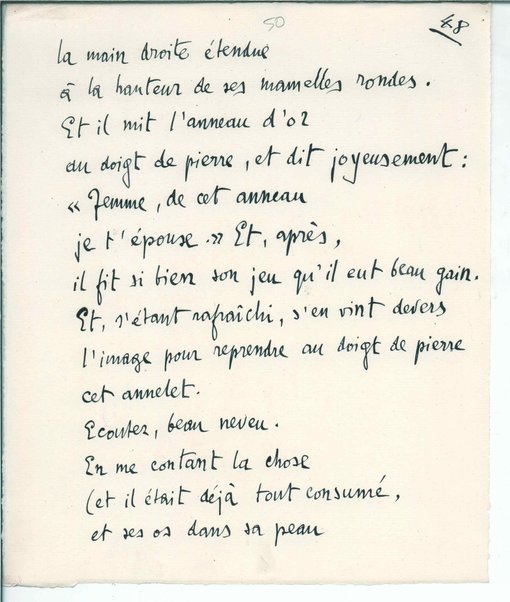 50
48
la main droite étendue
à la hauteur de ses mamelles rondes.
Et il mit l'anneau d'or
au doigt de pierre, et dit joyeusement :
« Femme, de cet anneau
je t'épouse. » Et, après,
il fit si bien son jeu qu'il eut beau gain.
Et, s'étant rafraîchi, s'en vint devers
l'image pour reprendre au doigt de pierre
cet annelet.
Ecoutez, beau neveu.
En me contant la chose
(et il était déjà tout consumé,
et ses os dans sa peau